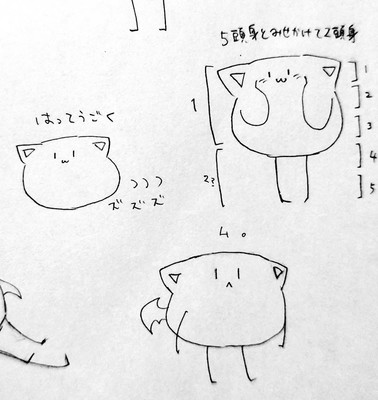 5頭身とみせかけて2頭身
1
2
3
4
5
1
2?
はってうごく
つつつ
ズズズ
4。